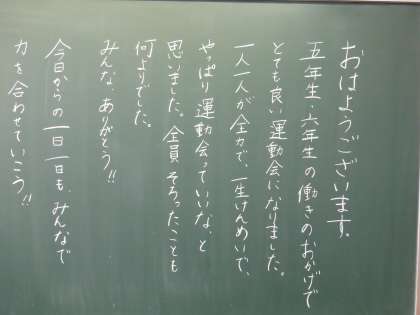 おはようございます。
五年生・六年生の働きのおかげで
とても良い運動会になりました。
一人一人が全力で、一生けんめいで、
やっぱり運動会っていいな、と
思いました。全員そろったことも
何よりでした。
みんな、ありがとう!!
今日からの一日一日も、みんなで
力を合わせていこう!!